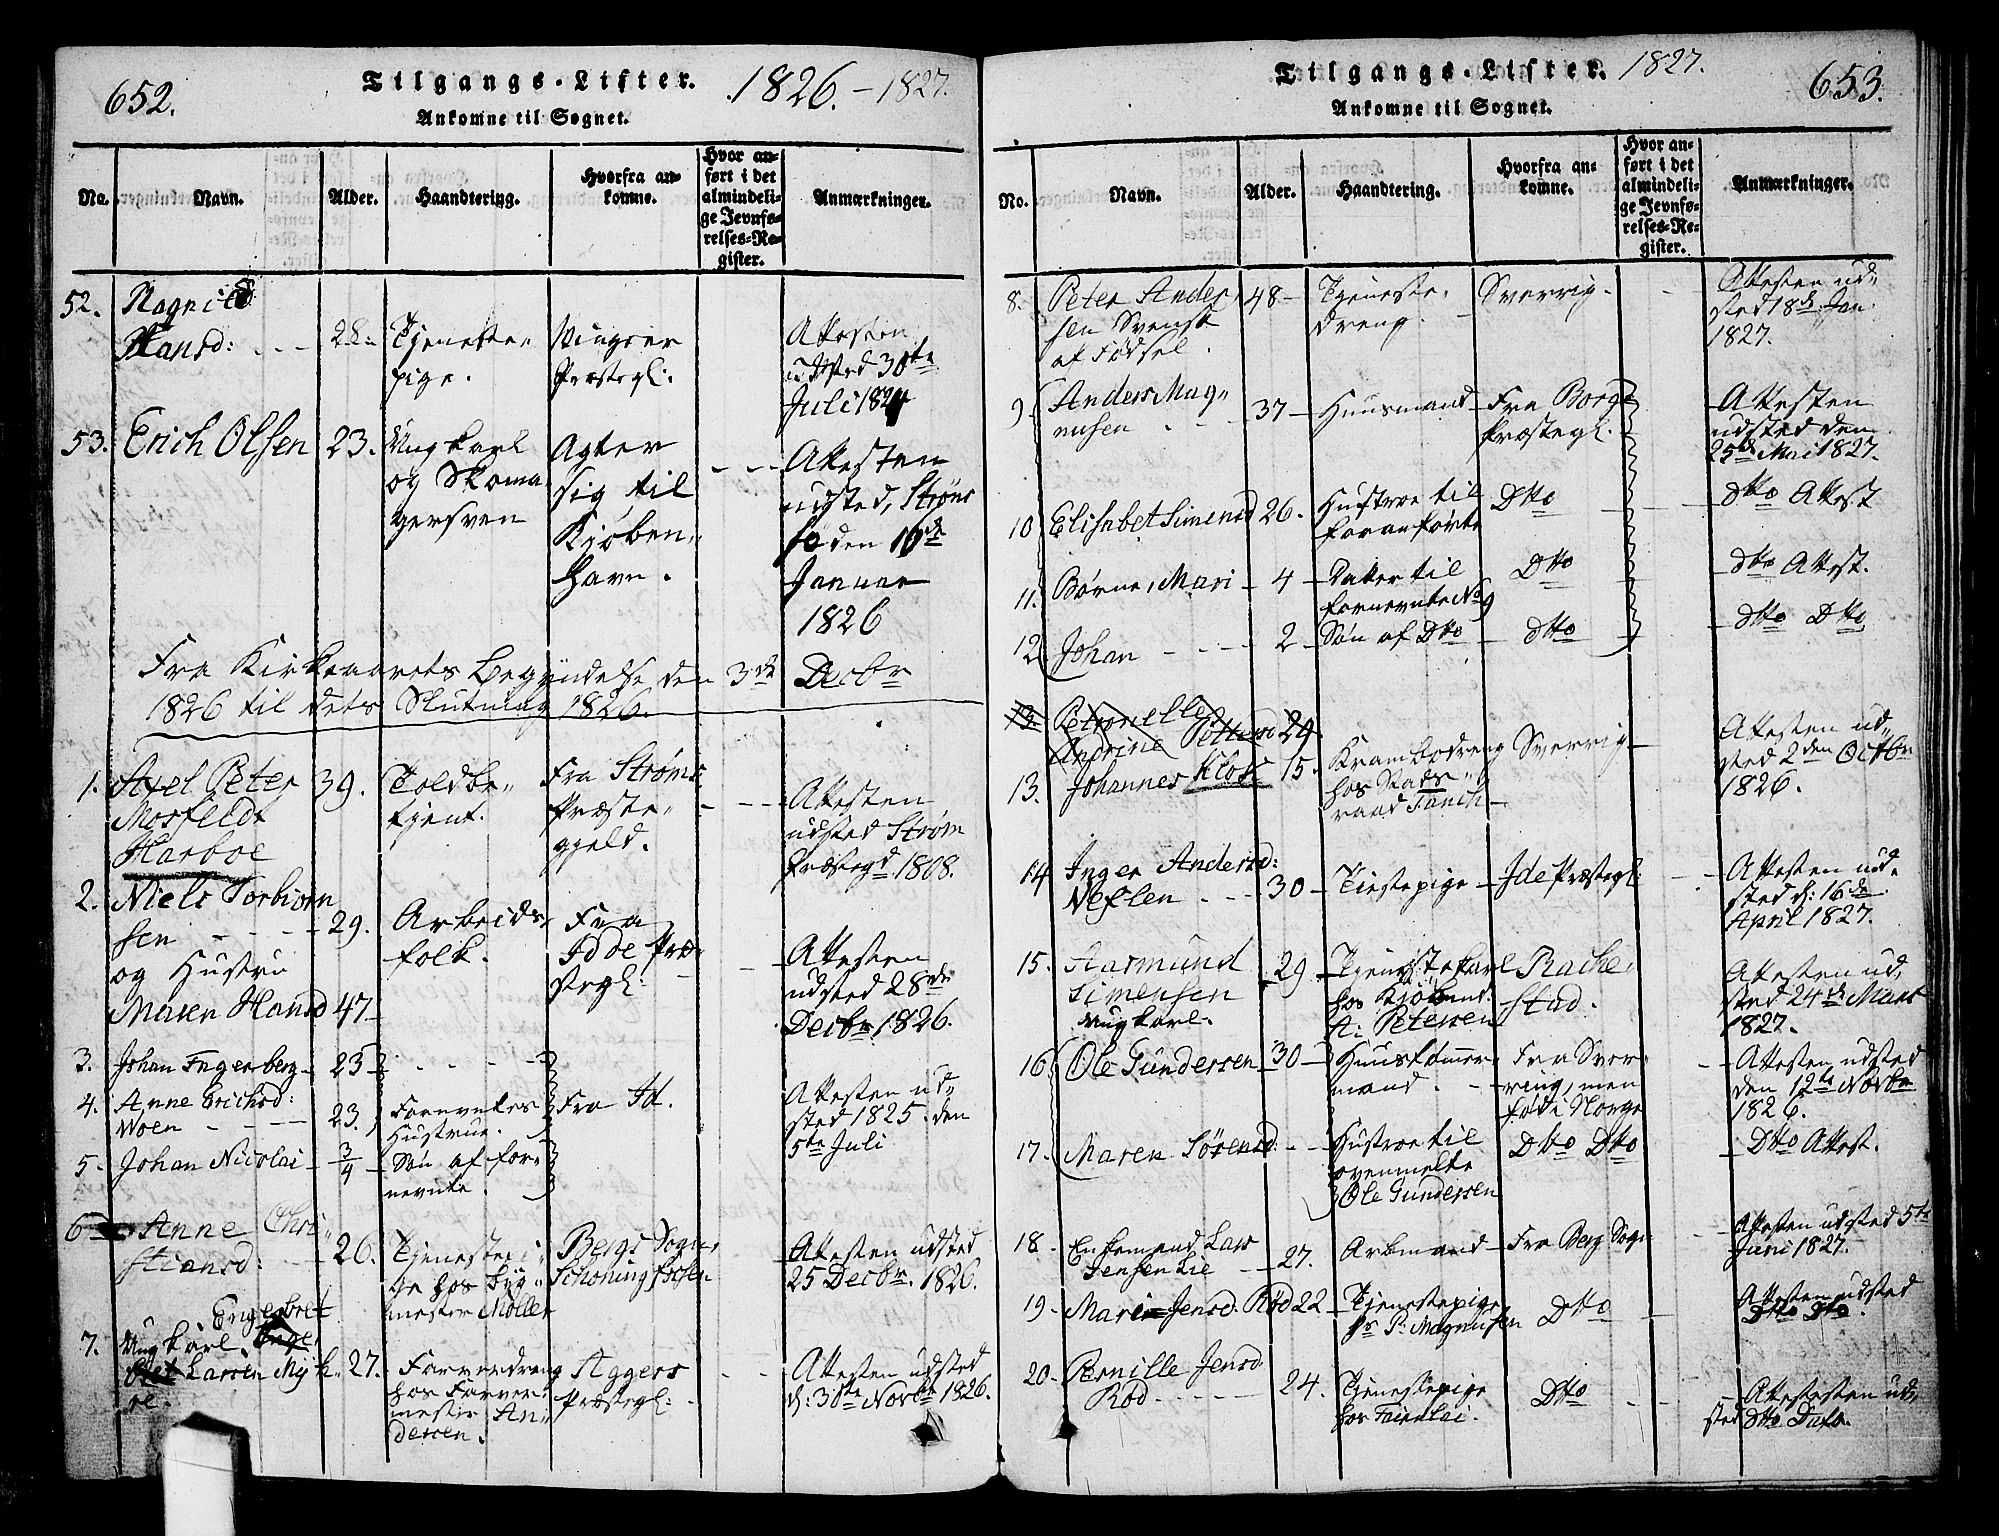 652.
Tilgangs-Lister.
1826. - 1827.
Ankomne til Sognet.
No.
Navn.
Alder.
Haandtering.
Hvorfra an-
komne.
Hvor an-
ført i det
almindeli-
ge Jevnfø-
relses-Re-
gister.
Anmærkninger.
52.
Hansd:
Tjeneste-
pige.
Præstegl:
Attesten
udsted 30te
Juli
53.
Erich Olsen
23.
Ungkarl
og Skoma
gersven
Agter
sig til
Kjøben-
havn.
Attesten
udsted, Strøms
øden 16de
Januar
1826
Fra Kirkeaarets Begyndelse den 3de Decbr
1826 til dets Slutning 1826.
1.
Axel Peter
Mosfeldt
Harboe
39.
Toldbe-
tjent.
Fra Strøms
Præste-
gjeld.
Attesten
udsted Strøm
Præstegd 1808.
2.
Niels Torbiørn
sen
29.
og Hustru
Maren Hansd 47
Arbeids
folk.
Fra
Idde Præ-
stegl:
Attesten
udsted 28de
Decbr 1826.
3.
Johan Engerberg
25
4.
Anne Erichsd:
Woen
23.
Fornevntes
Hustrue.
Fra Id.
Attesten ud-
sted 1825 den
5te Juli
5.
Johan Nicolai
3/4
Søn af for-
nevnte.
6
Anne Chri-
stiansd:
26.
Tjenestepi-
ge hos Byg-
mester Møller
Bergs Sogn
Attesten udsted
25 Decbr. 1826.
7.
Engebret
Ungkarl
Larsen Myh-
re.
27.
Farverdreng
hos Farver-
mester An-
dersen.
Aggers
Præstegl:
Attesten udsted
d: 30te Novbr 1826.
Tilgangs-Lister.
1827.
653.
Ankomne til Sognet.
No.
Navn.
Alder.
Haandtering.
Hvorfra an-
komne.
Hvor an-
ført i det
almindeli-
ge Jevnfø-
relses-Re-
gister.
Anmærkninger.
8.
Peter Ander-
sen Svensk
af Fødsel.
48
Tjeneste-
dreng.
Sverrig.
Attesten ud-
sted 18de Jan.
1827.
9.
Anders Mag-
nusen
37
Huusmand
Fra Borge
Præstegl.
Attesten
udsted den
25de Mai 1827.
10
Elisabet Simensd
26.
Hustroe til
foranførte
Dtto
dtto Attest
11.
Børne, Mari
4
Datter til
fornevnte No 9
Dtto
dtto Attest.
12.
Johan
2
Søn af Dtto
dtto
dtto Dtto
13.
Petronelle
29
13.
Johannes Klos
15.
Krambodreng
hos
Sverrig
Attesten ud-
sted 2den Octbr
1826.
14
Inger Andersd:
30
Tienstepige
Ide Præstegl:
Attesten ud-
sted d: 16de
April 1827.
15.
Aasmund
Simensen
Ungkarl.
29
Tjenestekarl
hos Kjøbmd:
A: Petersen
Rackestad.
Attesten ud-
sted 24de Mars
1827.
16
Ole Gundersen
30
Huustømmer-
mand.
Fra Sver-
rig, men
fød i Norge
Attesten udsted
den 12te Novbr
1826.
17.
Maren Sørensd:
Hustroe til
ovenmelte
Ole Gundersen
Dtto Dtto
Dtto Attest.
18.
Enkemand Lars
Jensen Lie
27.
Arbmand
Fra Berg Sogn
Attesten udsted 5te
Juni 1827.
19.
Marie Jensd. Rød 22
Tjenestepige
hs P. Magnusen
Dtto
Attesten udsted
Dtto Dto.
20.
Pernille Jensd
Rød
24.
Tjenestepige
hos
Dtto
Attesten ud-
sted dtto Dato.